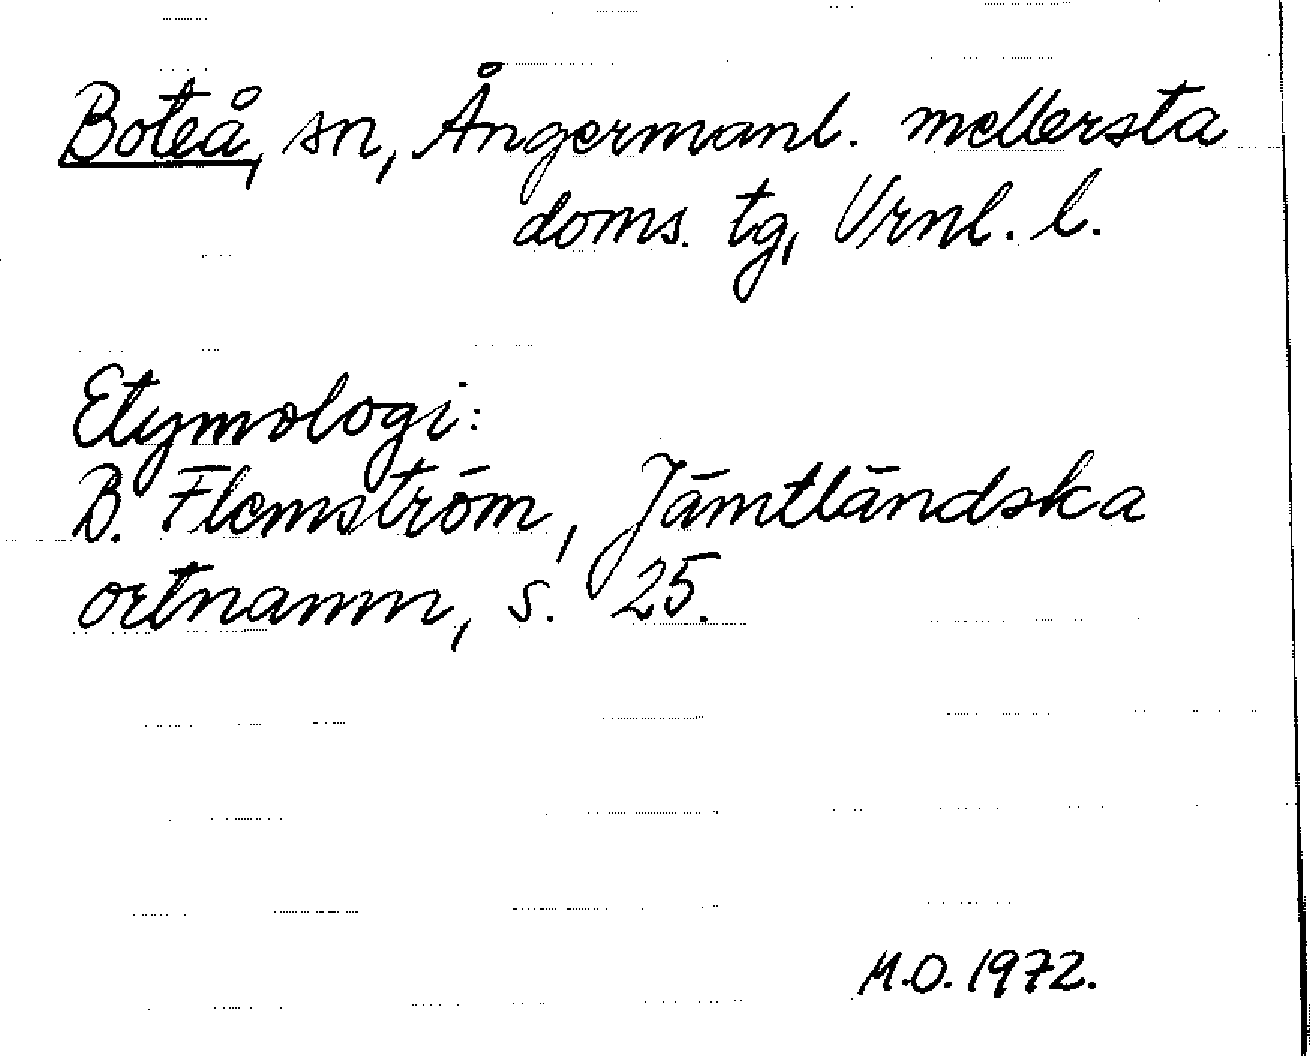 Boteå, sn, Ångermanl. mellersta
doms. tg, Vrnl. l.
Etymologi:
B. Flemström, Jämtländska
ortnamn, s. 25.
M.O. 1972.